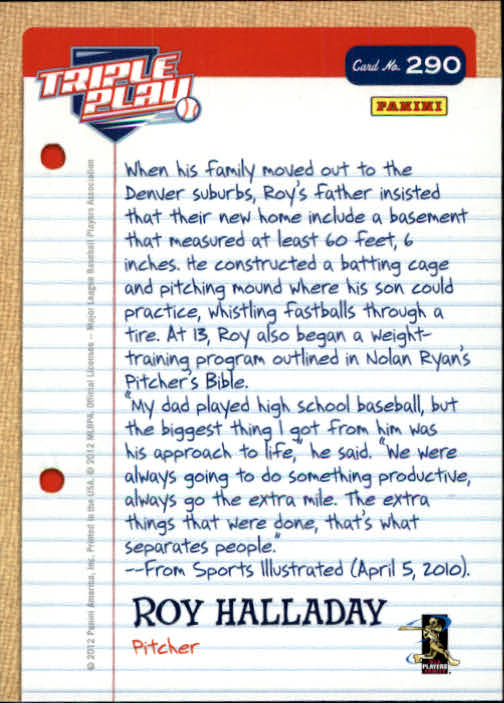 Card No. 290
TRIPLE
PLAY
PANINI
When his family moved out to the
Denver suburbs, Roy's father insisted
that their new home include a basement
that measured at least 60 feet, 6
inches. He constructed a batting cage
and pitching mound where his son could
practice, whistling fastballs through a
tire. At 13, Roy also began a weight-
training program outlined in Nolan Ryan's
Pitcher's Bible.
"My dad played high school baseball, but
the biggest thing I got from him was
his approach to life," he said. "We were
always going to do something productive,
always go the extra mile. The extra
things that were done, that's what
separates people."
--From Sports Illustrated (April 5, 2010).
ROY HALLADAY
Pitcher
PLAYERS
© 2012 Panini America, Inc. Printed in the USA. © 2012 MLBPA. Official Licensee – Major League Baseball Players Association